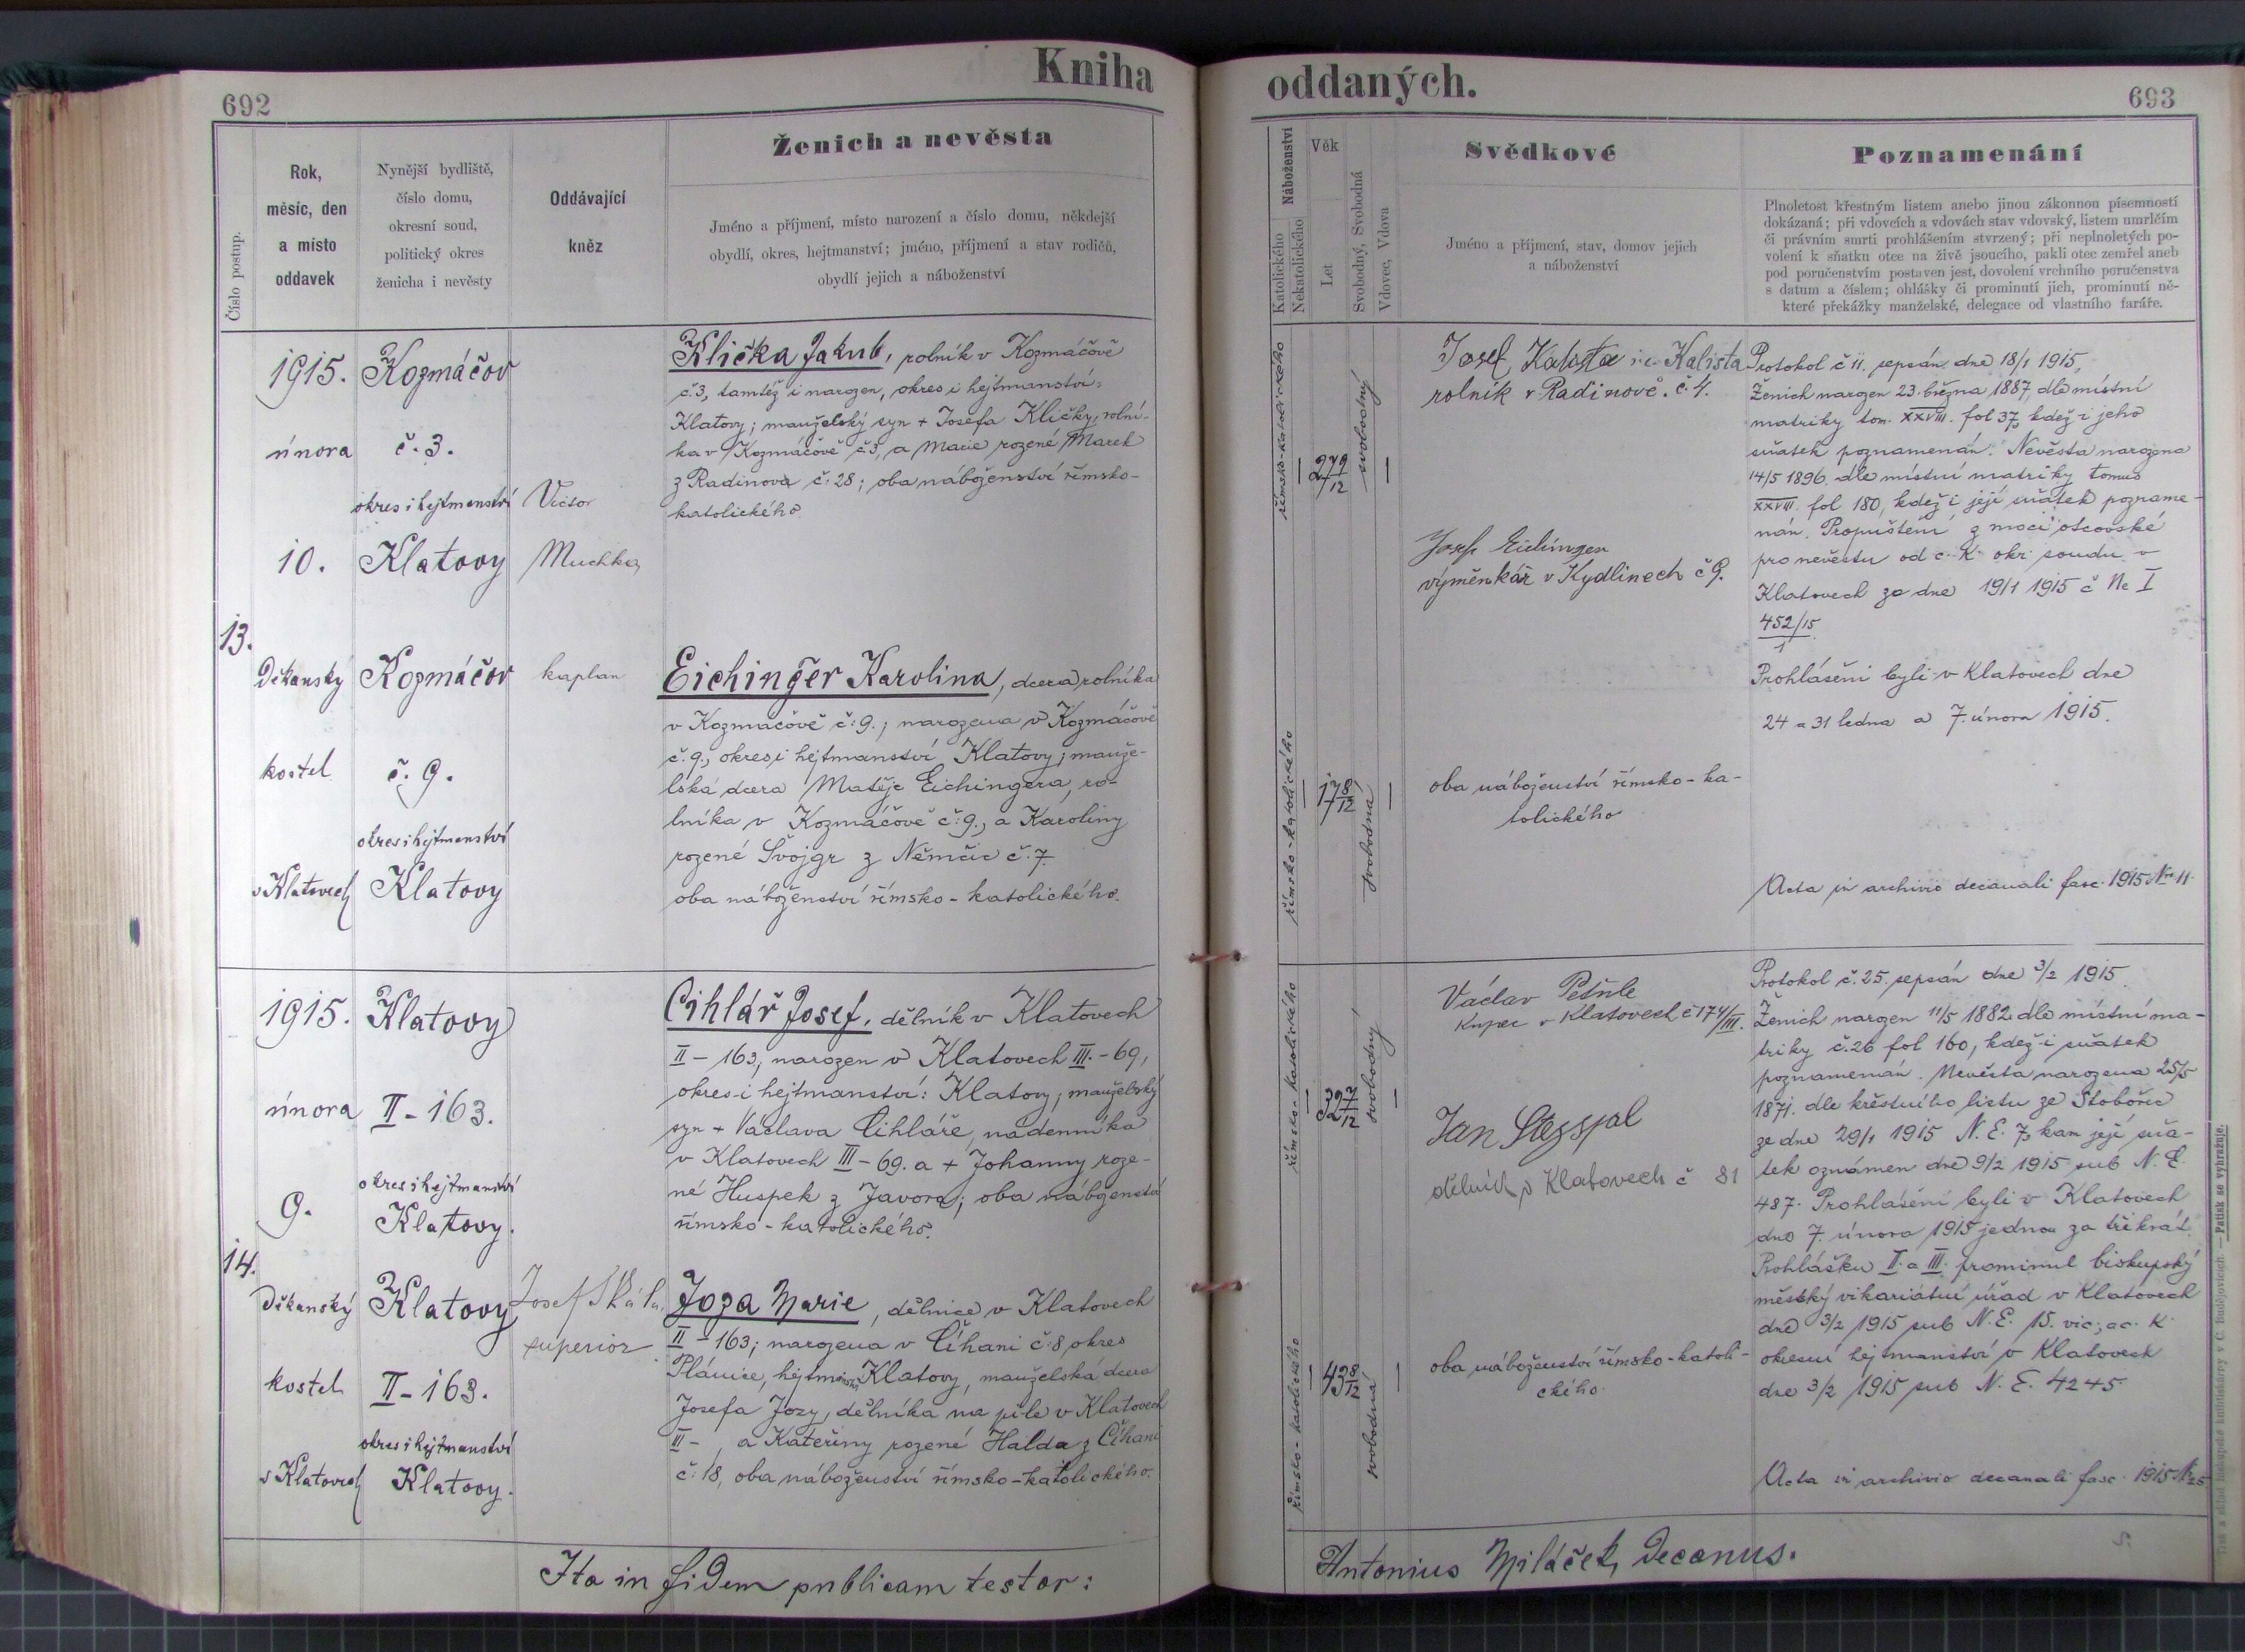 Kniha oddaných.
692
693
Číslo postup.
Rok,
měsíc, den
a místo
oddavek
Nynější bydliště,
číslo domu,
okresní soud,
politický okres
ženicha i nevěsty
Oddávající
kněz
Ženich a nevěsta
Jméno a příjmení, místo narození a číslo domu, někdejší
obydlí, okres, hejtmanství; jméno, příjmení a stav rodičů,
obydlí jejich a náboženství
Náboženství
Katolického
Nekatolického
Věk
Let
Svobodný, Svobodná
Vdovec, Vdova
Svědkové
Jméno a příjmení, stav, domov jejich
a náboženství
Poznamenání
Plnoletost křestným listem anebo jinou zákonnou písemností
dokázaná; při vdovcích a vdovách stav vdovský, listem umrlčím
či právním smrti prohlášením stvrzený; při neplnoletých po-
volení k sňatku otce na živě jsoucího, pakli otec zemřel aneb
pod poručenstvím postaven jest, dovolení vrchního poručenstva
s datum a číslem; ohlášky či prominutí jich, prominutí ně-
které překážky manželské, delegace od vlastního faráře.
13.
1915.
února
10.
Děkanský
kostel
v Klatovech
Kozmáčov
č. 3.
okres i hejtmanství
Klatovy
Kozmáčov
č. 9.
okres i hejtmanství
Klatovy
Victor
Muchka,
kaplan
Klička Jakub, rolník v Kozmáčově
č. 3, tamtéž i narozen, okres i hejtmanství:
Klatovy; manželský syn + Josefa Kličky, rolní-
ka v Kozmáčově č. 3, a Marie rozené Marek
z Radinova č: 28; oba náboženství římsko-
katolického.
Eichinger Karolina, dcera rolníka
v Kozmáčově č: 9.; narozena v Kozmáčově
č. 9., okres i hejtmanství Klatovy; manže-
lská dcera Matěje Eichingera, ro-
lníka v Kozmáčově č: 9., a Karoliny
rozené Švojgr z Němčic č. 7.
oba náboženství římsko-katolického.
římsko-katolického
27 9/12
svobodný
římsko-katolického
17 8/12
svobodná
Josef Kalista
rolník v Radinově. č. 4.
výměnkář v Kydlinech č 9.
oba náboženství římsko-ka-
tolického
Protokol č 11. sepsán dne 18/1 1915,
Ženich narozen 23. března 1887, dle místní
matriky tom. XXVIII. fol 37, kdež i jeho
sňatek poznamenán. Nevěsta narozena
14/5 1896. dle místní matriky tomus
XXVIII. fol 180, kdež i její sňatek pozname-
nán. Propuštění z moci otcovské
pro nevěstu od c. k. okr. soudu v
Klatovech ze dne 19/1 1915 č Nc I
452/15
Prohlášeni byli v Klatovech dne
24 a 31 ledna a 7. února 1915.
Acta in archivio decanali fasc. 1915 Nro 11.
14.
1915.
února
9.
Děkanský
kostel
v Klatovech
Klatovy
II-163.
okres i hejtmanství
Klatovy.
Klatovy
II-163.
okres i hejtmanství
Klatovy.
Josef Skála,
superior
Cihlář Josef, dělník v Klatovech
II-163; narozen v Klatovech III.-69,
okres i hejtmanství: Klatovy; manželský
syn + Václava Cihláře, nádenníka
v Klatovech III-69. a + Johanny roze-
né Huspek z Javora; oba náboženství
římsko-katolického.
Joza Marie, dělnice v Klatovech
II-163; narozena v Číhani č. 8, okres
Plánice, hejtmanství Klatovy, manželská dcera
Josefa Jozy, dělníka na pile v Klatovech
III- , a Kateřiny rozené Halda z Číhani
č: 18, oba náboženství římsko-katolického.
římsko-katolického
32 7/12
svobodný
římsko-katolického
43 8/12
svobodná
Václav Petrle
kupec v Klatovech č 174/III.
Jan
dělník v Klatovech č 81
oba náboženství římsko-katoli-
ckého.
Protokol č. 25. sepsán dne 3/2 1915.
Ženich narozen 11/5 1882 dle místní ma-
triky č. 26 fol 160, kdež i sňatek
poznamenán. Nevěsta narozena 25/5
1871. dle křestního listu ze Stobořic
ze dne 29/1 1915 N. E. 7, kam její sňa-
tek oznámen dne 9/2 1915 sub N. E.
487. Prohlášeni byli v Klatovech
dne 7. února 1915 jednou za třikrát.
Prohlášku II. a III. prominul biskupský
městský vikariátní úřad v Klatovech
dne 3/2 1915 sub N. E. 15. vic; a c. k.
okresní hejtmanství v Klatovech
dne 3/2 1915 sub N. E. 4245.
Acta in archivio decanali fasc. 1915 Nr 25
Ita in fidem publicam testor:
Antonius Miláček, Decanus.
Tisk a sklad biskupské knihtiskárny v Č. Budějovicích. — Patisk se vyhražuje.